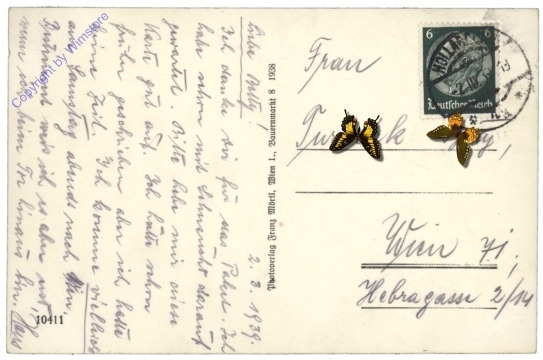 Liebe
2. 3. 1939.
Ich danke dir für das Paket. Ich
habe schon mit darauf
gewartet. Bitte hebe mir diese
Karte gut auf. Ich hätte schon
früher geschrieben aber ich hatte
keine Zeit. Ich komme vielleicht
am Samstag abends nach Wien
weiß ich es aber erst,
wenn ich beim Tor hinaus bin. Hans
10411
Photoverlag Franz Mörtl, Wien I., Bauernmarkt 8 1938
Copyright by Wimstore
6 6
Deutsches Reich
Frau
Wien 71,
Hebragasse 2/14